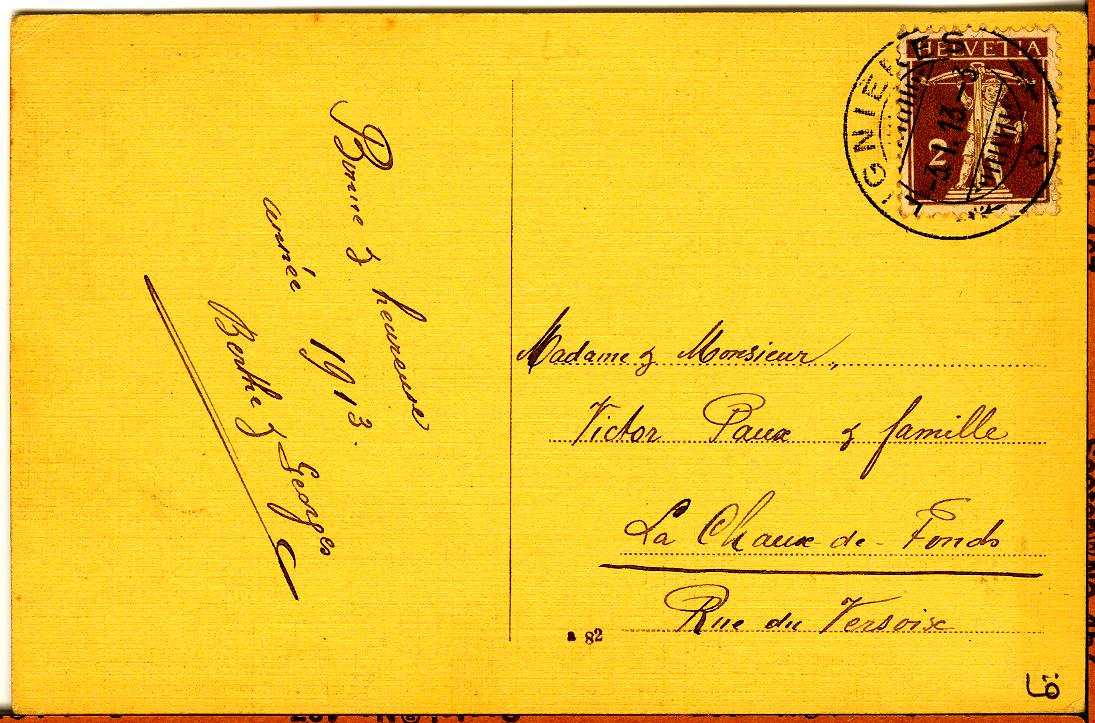 Bonne & heureuse
année 1913.
Berthe & Georges
HELVETIA
2
LIGNIÈRES
-1.1.13.-3
Madame & Monsieur,
Victor Paux & famille
La Chaux-de-Fonds
Rue du Versoix
a 82